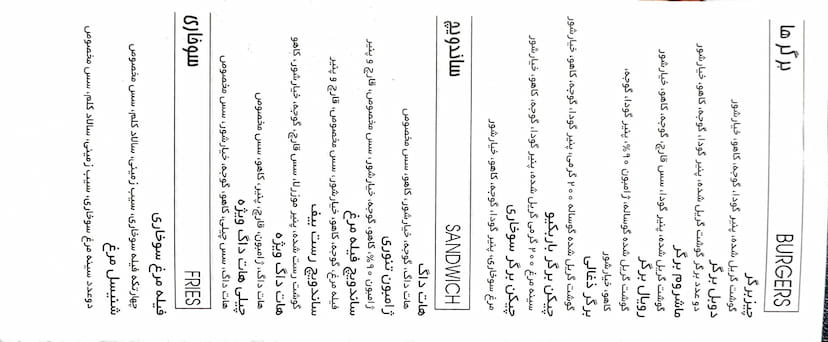 برگر ها
BURGERS
چیزبرگر
گوشت گریل شده، پنیر گودا، گوجه، کاهو، خیارشور
دوبل برگر
دو عدد برگر گوشت گریل شده، پنیر گودا، گوجه، کاهو، خیارشور
ماشروم برگر
گوشت گریل شده، پنیر گودا، سس قارچ، گوجه، کاهو، خیارشور
رویال برگر
گوشت گریل شده گوساله، ژامبون ۹۰%، پنیر گودا، گوجه،
کاهو، خیارشور
برگر ذغالی
گوشت گریل شده گوساله ۲۰۰ گرمی، پنیر گودا، گوجه، کاهو، خیارشور
چیکن برگر باربکیو
سینه مرغ ۲۰۰ گرمی گریل شده، پنیر گودا، گوجه، کاهو، خیارشور
چیکن برگر سوخاری
مرغ سوخاری، پنیر گودا، گوجه، کاهو، خیار شور
ساندویچ
SANDWICH
هات داگ
هات داگ، گوجه، خیارشور، کاهو، سس مخصوص
ژامبون تنوری
ژامبون ۹۰%، کاهو، گوجه، خیارشور، سس مخصوص، قارچ و پنیر
ساندویچ فیله مرغ
فیله مرغ، گوجه، کاهو، خیارشور، سس مخصوص، قارچ و پنیر
ساندویچ رست بیف
گوشت رست شده، پنیر موزرلا، سس قارچ، گوجه، خیارشور، کاهو
هات داگ ویژه
هات داگ، ژامبون، قارچ، پنیر، کاهو، سس مخصوص
چیلی هات داگ ویژه
هات داگ، سس چیلی، کاهو، گوجه، خیارشور، سس مخصوص
سوخاری
FRIES
فیله مرغ سوخاری
چهارتکه فیله سوخاری، سیب زمینی، سالاد کلم، سس مخصوص
شنیسل مرغ
دوعدد سینه مرغ سوخاری، سیب زمینی، سالاد کلم، سس مخصوص